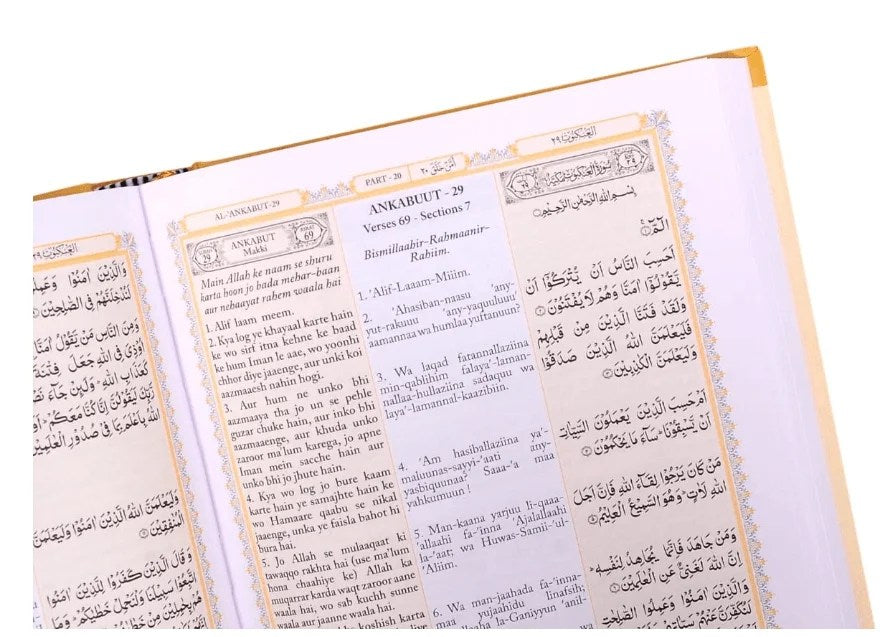 العنكبوت ٢٩
وَالَّذِيْنَ اٰمَنُوْا وَعَمِلُوا
لَنُدْخِلَنَّهُمْ فِى الصّٰلِحِيْنَ
وَمِنَ النَّاسِ مَنْ يَّقُوْلُ اٰمَنَّا
اُوْذِىَ فِى اللّٰهِ جَعَلَ فِتْنَةَ
كَعَذَابِ اللّٰهِ ؕ وَلَئِنْ جَآءَ نَصْرٌ
رَّبِّكَ لَيَقُوْلُنَّ اِنَّا كُنَّا مَعَكُمْ ؕ
اللّٰهُ بِاَعْلَمَ بِمَا فِىْ صُدُوْرِ الْعٰلَمِيْنَ
وَلَيَعْلَمَنَّ اللّٰهُ الَّذِيْنَ اٰمَنُوْا وَلَيَعْلَمَنَّ
الْمُنٰفِقِيْنَ
وَقَالَ الَّذِيْنَ كَفَرُوْا لِلَّذِيْنَ اٰمَنُوا
اتَّبِعُوْا سَبِيْلَنَا وَلْنَحْمِلْ خَطٰيٰكُمْ ؕ وَمَا
AL-'ANKABUT-29
PART - 20
اَمَّنْ خَلَقَ ٢٠
العنكبوت ٢٩
ANKABUT
Makki
69
Main Allah ke naam se shuru
karta hoon jo bada mehar-baan
aur nehaayat rahem waala hai
1. Alif laam meem.
2. Kya log ye khayaal karte hain
ke wo sirf itna kehne ke baad
ke hum Iman le aae, wo yoonhi
chhor diye jaaenge, aur unki koi
aazmaesh nahin hogi.
3. Aur hum ne unko bhi
aazmaaya tha jo un se pehle
guzar chuke hain, aur inko bhi
aazmaaenge, aur khuda unko
zaroor ma'lum karega, jo apne
Iman mein sacche hain aur
unko bhi jo jhute hain.
4. Kya wo log jo bure kaam
karte hain ye samajhte hain ke
wo Hamaare qaabu se nikal
jaaenge, unka ye faisla bahot hi
bura hai.
5. Jo Allah se mulaaqaat ki
tawaqqo rakhta hai (use ma'lum
hona chaahiye ke) Allah ka
muqarrar karda waqt zaroor aane
waala hai, wo sab kuchh sunne
waala aur jaanne waala hai.
koshish karta
ANKABUUT - 29
Verses 69 - Sections 7
Bismillaahir-Rahmaanir-
Rahiim.
1. 'Alif-Laaam-Miiim.
2. 'Ahasiban-naasu 'any-
yut-rakuuu 'any-yaquuluuu'
aamannaa wa humlaa yuftanuun?
3. Wa laqad fatannallaziina
min-qablihim falaya'-laman-
nallaa-hullaziina sadaquu wa
laya'-lamannal-kaazibiin.
4. 'Am hasiballaziina ya'-
maluunas-sayyi-'aati any-
yasbiquunaa? Saaa-'a maa
yahkumuun !
5. Man-kaana yarjuu li-qaaa-
'allaahi fa-'inna 'Ajalallaahi
la-'aat; wa Huwas-Samii-'ul-
'Aliim.
6. Wa man-jaahada fa-'inna-
maa yujaahidu linafsih;
la-Ganiyyun 'anil-
سُوْرَةُ الْعَنْكَبُوْتِ مَكِّيَّةٌ
بِسْمِ اللّٰهِ الرَّحْمٰنِ الرَّحِيْمِ
الٓمّٓ ۝١
اَحَسِبَ النَّاسُ اَنْ يُّتْرَكُوْٓا اَنْ
يَّقُوْلُوْٓا اٰمَنَّا وَهُمْ لَا يُفْتَنُوْنَ ۝٢
وَلَقَدْ فَتَنَّا الَّذِيْنَ مِنْ قَبْلِهِمْ
فَلَيَعْلَمَنَّ اللّٰهُ الَّذِيْنَ صَدَقُوْا
وَلَيَعْلَمَنَّ الْكٰذِبِيْنَ ۝٣
اَمْ حَسِبَ الَّذِيْنَ يَعْمَلُوْنَ السَّيِّاٰتِ
اَنْ يَّسْبِقُوْنَا ؕ سَآءَ مَا يَحْكُمُوْنَ ۝٤
مَنْ كَانَ يَرْجُوْا لِقَآءَ اللّٰهِ فَاِنَّ اَجَلَ
اللّٰهِ لَاٰتٍ ؕ وَهُوَ السَّمِيْعُ الْعَلِيْمُ ۝٥
وَمَنْ جَاهَدَ فَاِنَّمَا يُجَاهِدُ لِنَفْسِهٖ ؕ
اِنَّ اللّٰهَ لَغَنِىٌّ عَنِ الْعٰلَمِيْنَ ۝٦
وَالَّذِيْنَ اٰمَنُوْا وَعَمِلُوا الصّٰلِحٰتِ
لَنُكَفِّرَنَّ عَنْهُمْ سَيِّاٰتِهِمْ